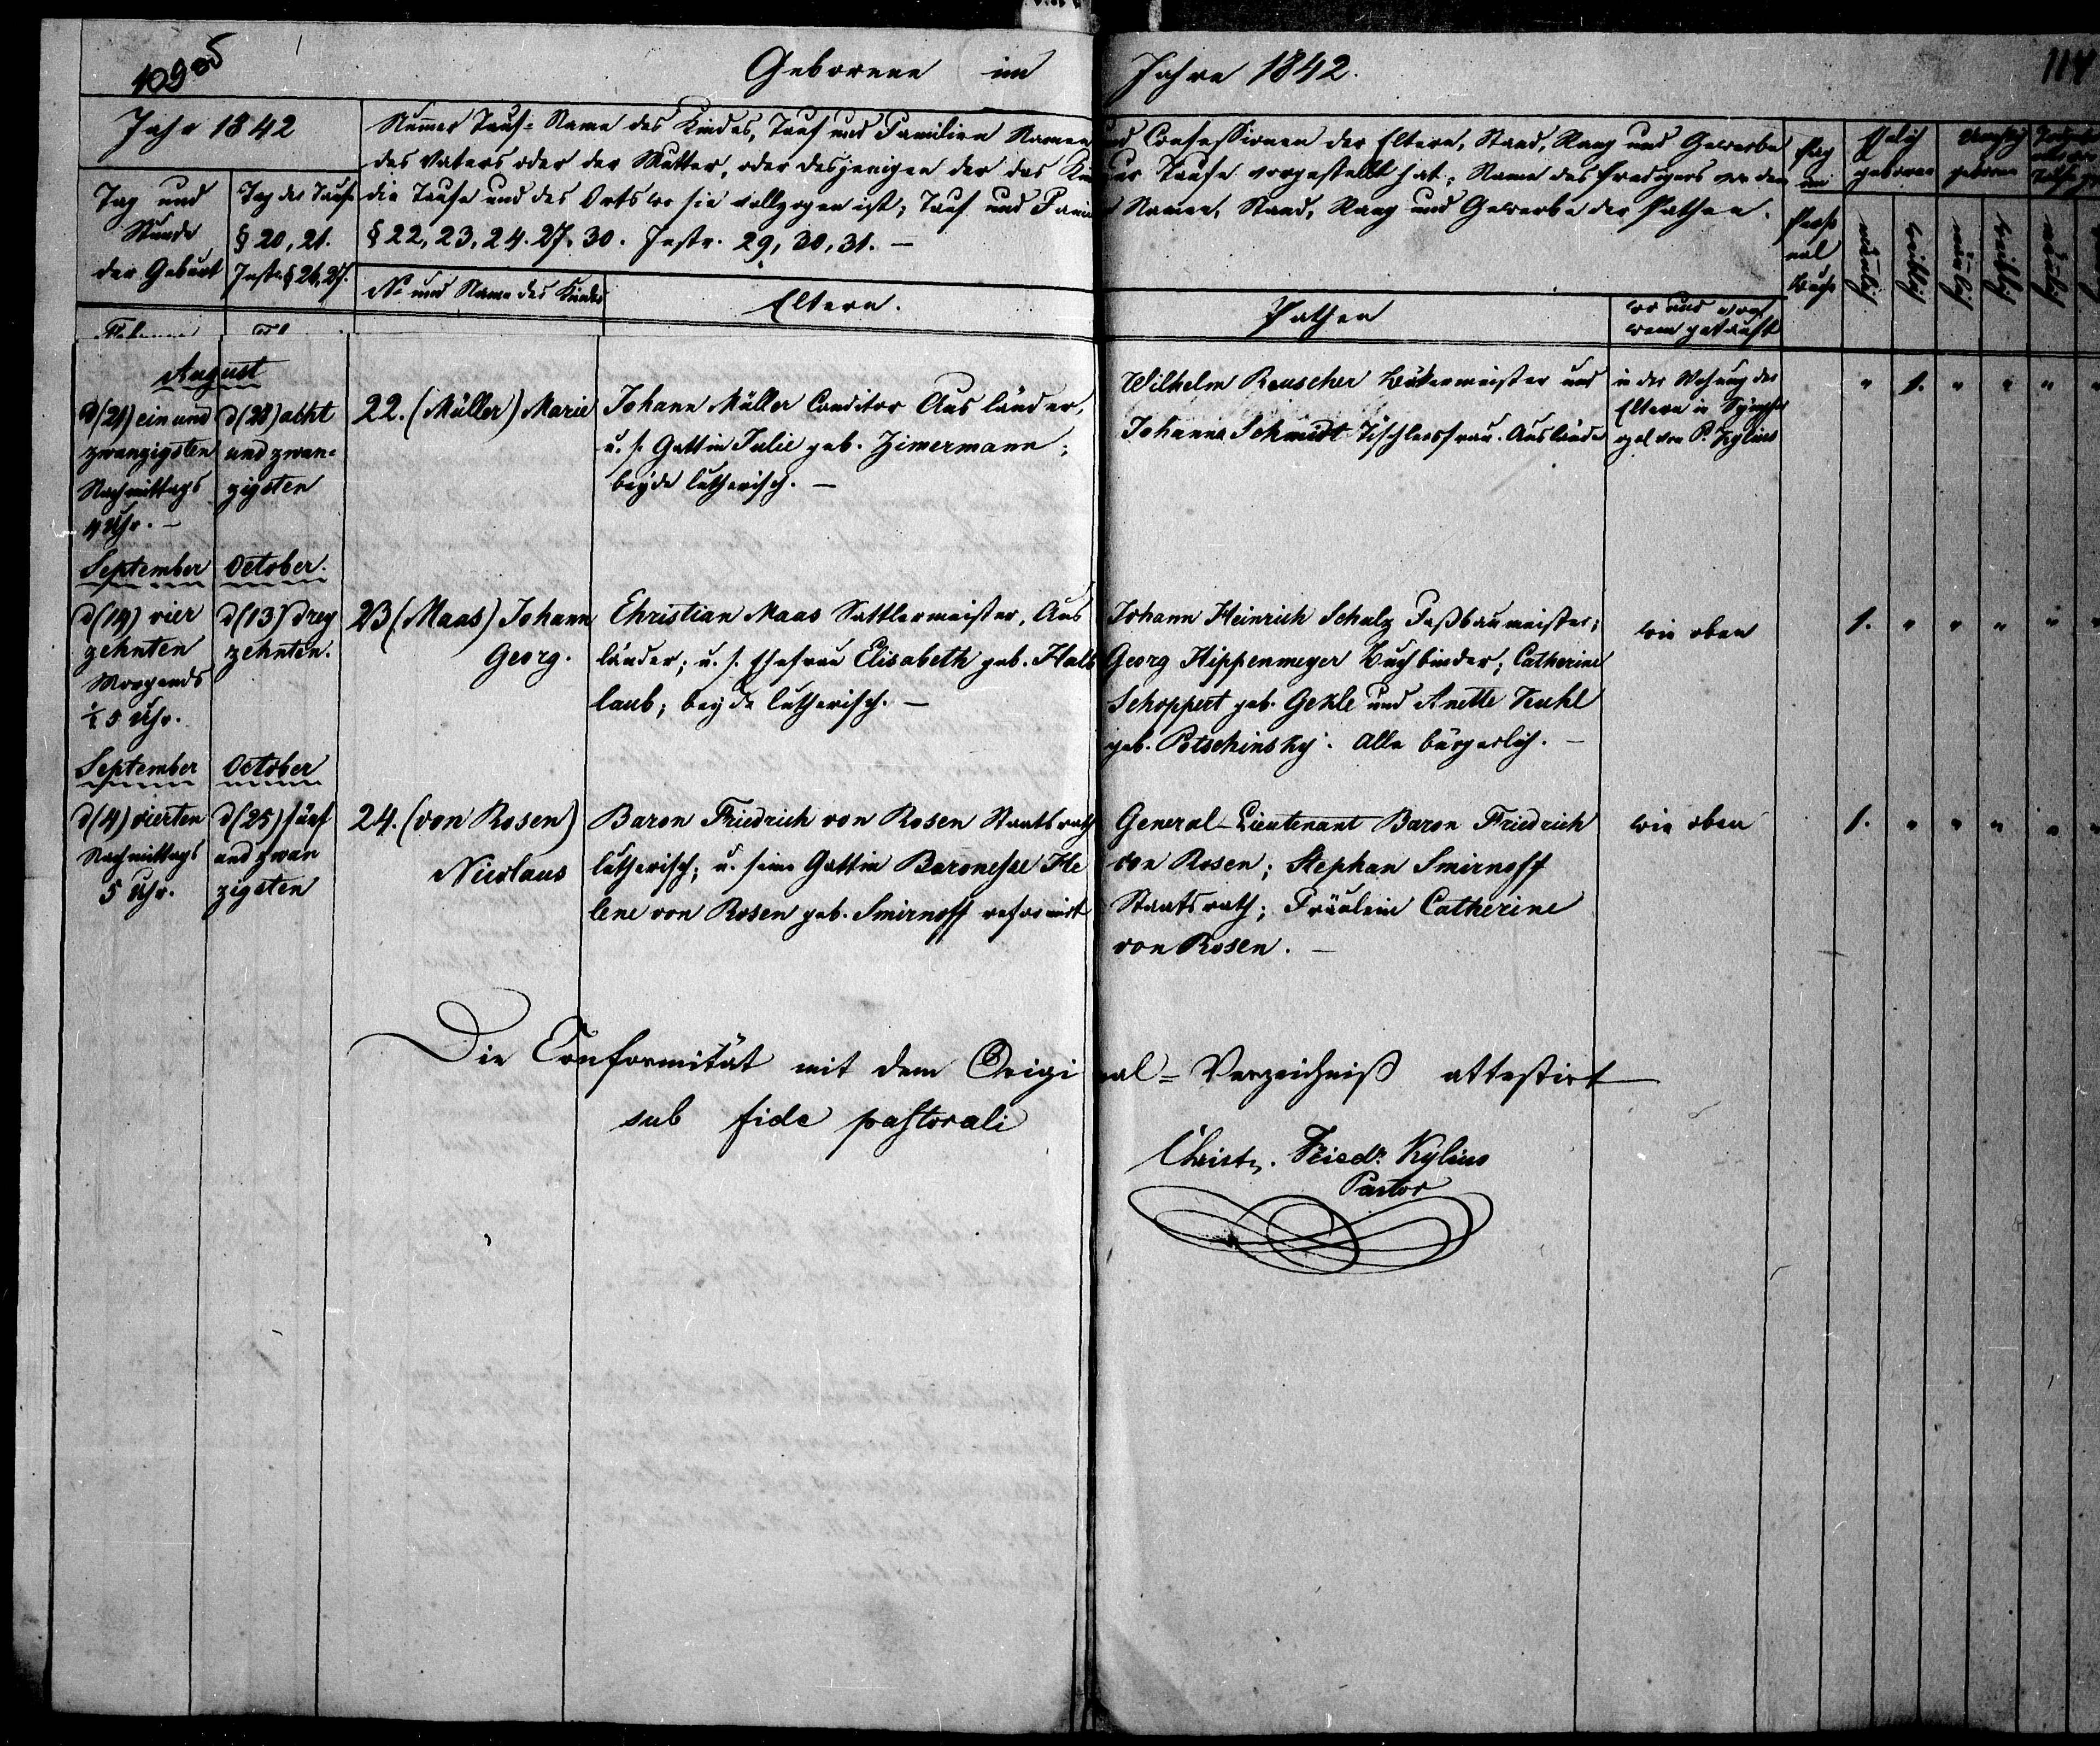 Geborene im Jahre 1842.
114
Jahr 1842
Tag und Stunde der Geburt
Tag der Taufe § 20, 21. Instr. § 26, 27.
Numer Tauf-Name des Kindes, Tauf und Familien Namen und Confessionen der Eltern, Stand, Rang und Gewerbe
des Vaters oder der Mutter, oder desjenigen der das Kind zur Taufe vorgestellt hat; Name des Predigers der
die Taufe und des Orts wo sie vollzogen ist; Tauf und Namen, Stand, Rang und Gewerbe der Pathen.
§ 22, 23, 24. 27. 30. Instr. 29, 30, 31. —
No und Name des Kindes
Eltern.
Pathen
wo und von wem getauft
Pag im Personal Buch
Ehelich geboren
geboren
mänlich
weiblich
mänlich
weiblich
mänlich
August
d (21) ein und
zwanzigsten
Nachmittags
4 Uhr. —
d (28) acht
und zwan-
zigsten
22. (Müller) Marie
Johann Müller Conditor Ausländer,
u. s. Gattin Julie geb. Zimermann;
beyde lutherisch. —
Wilhelm Reuscher Bäkermeister und
Johanna Schmidt Tischlersfrau. Ausländer
in der Wohnung der
Eltern in
von P. Kylius
" 1. " " "
September
October.
d (14) vier
zehnten
Morgends
½ 5 Uhr.
d (13) drey
zehnten.
23 (Maas) Johann
Georg.
Christian Maas Sattlermeister, Aus
länder; u. s. Ehefrau Elisabeth geb. Halb
laub; beyde lutherisch. —
Johann Heinrich Schulz
Georg Hippenmeyer Buchbinder; Catherine
Schoppert geb. Gekle und Anette Kuhl
geb. Potschinsky. Alle bürgerlich. —
wie oben
1. " " " " "
September
October
d (4) vierten
Nachmittags
5 Uhr.
d (25) fünf
und zwan
zigsten
24. (von Rosen)
Nicolaus
Baron Friedrich von Rosen Staatsrath
lutherisch; u. seine Gattin Baronesse He
lene von Rosen geb. Smirnoff reformirt
General-Lieutenant Baron Friedrich
von Rosen; Stephan Smirnoff
Staatsrath; Fräulein Catherine
von Rosen. —
wie oben
1. " " " " "
Die Conformität mit dem Original-Verzeichniß attestirt
sub fide pastorali
Christn. Friedr. Kylius
Pastor